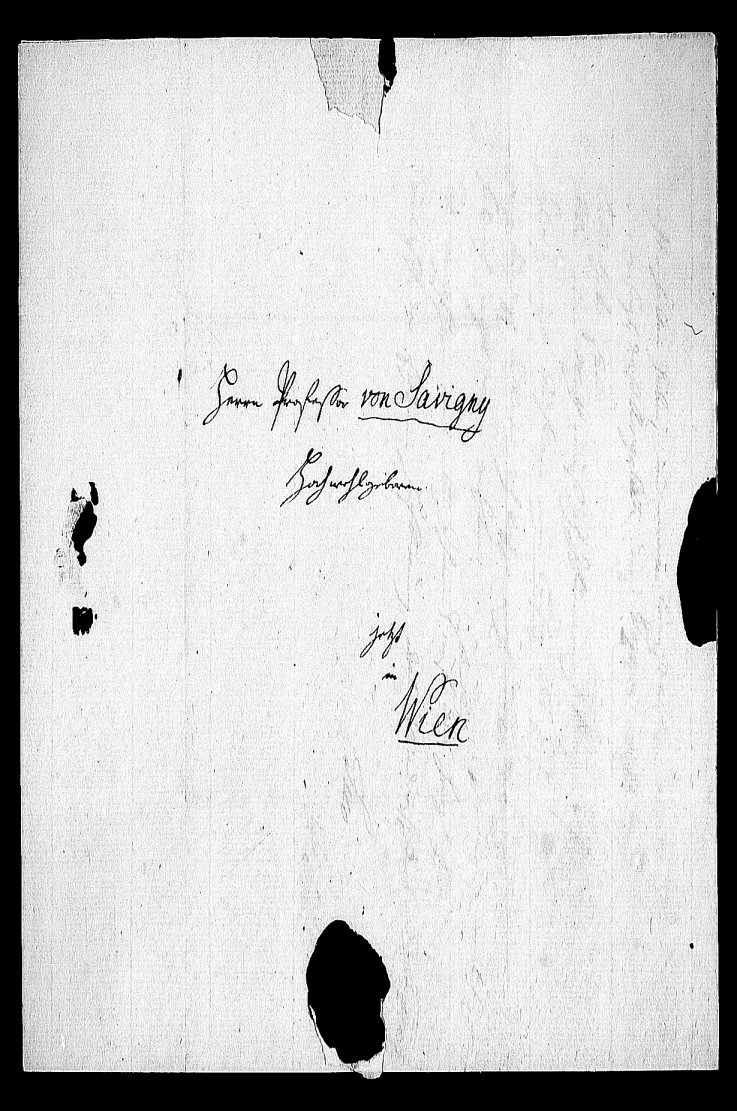 Herrn Professor von Savigny
Hochwohlgeboren.
jetzt
in
Wien